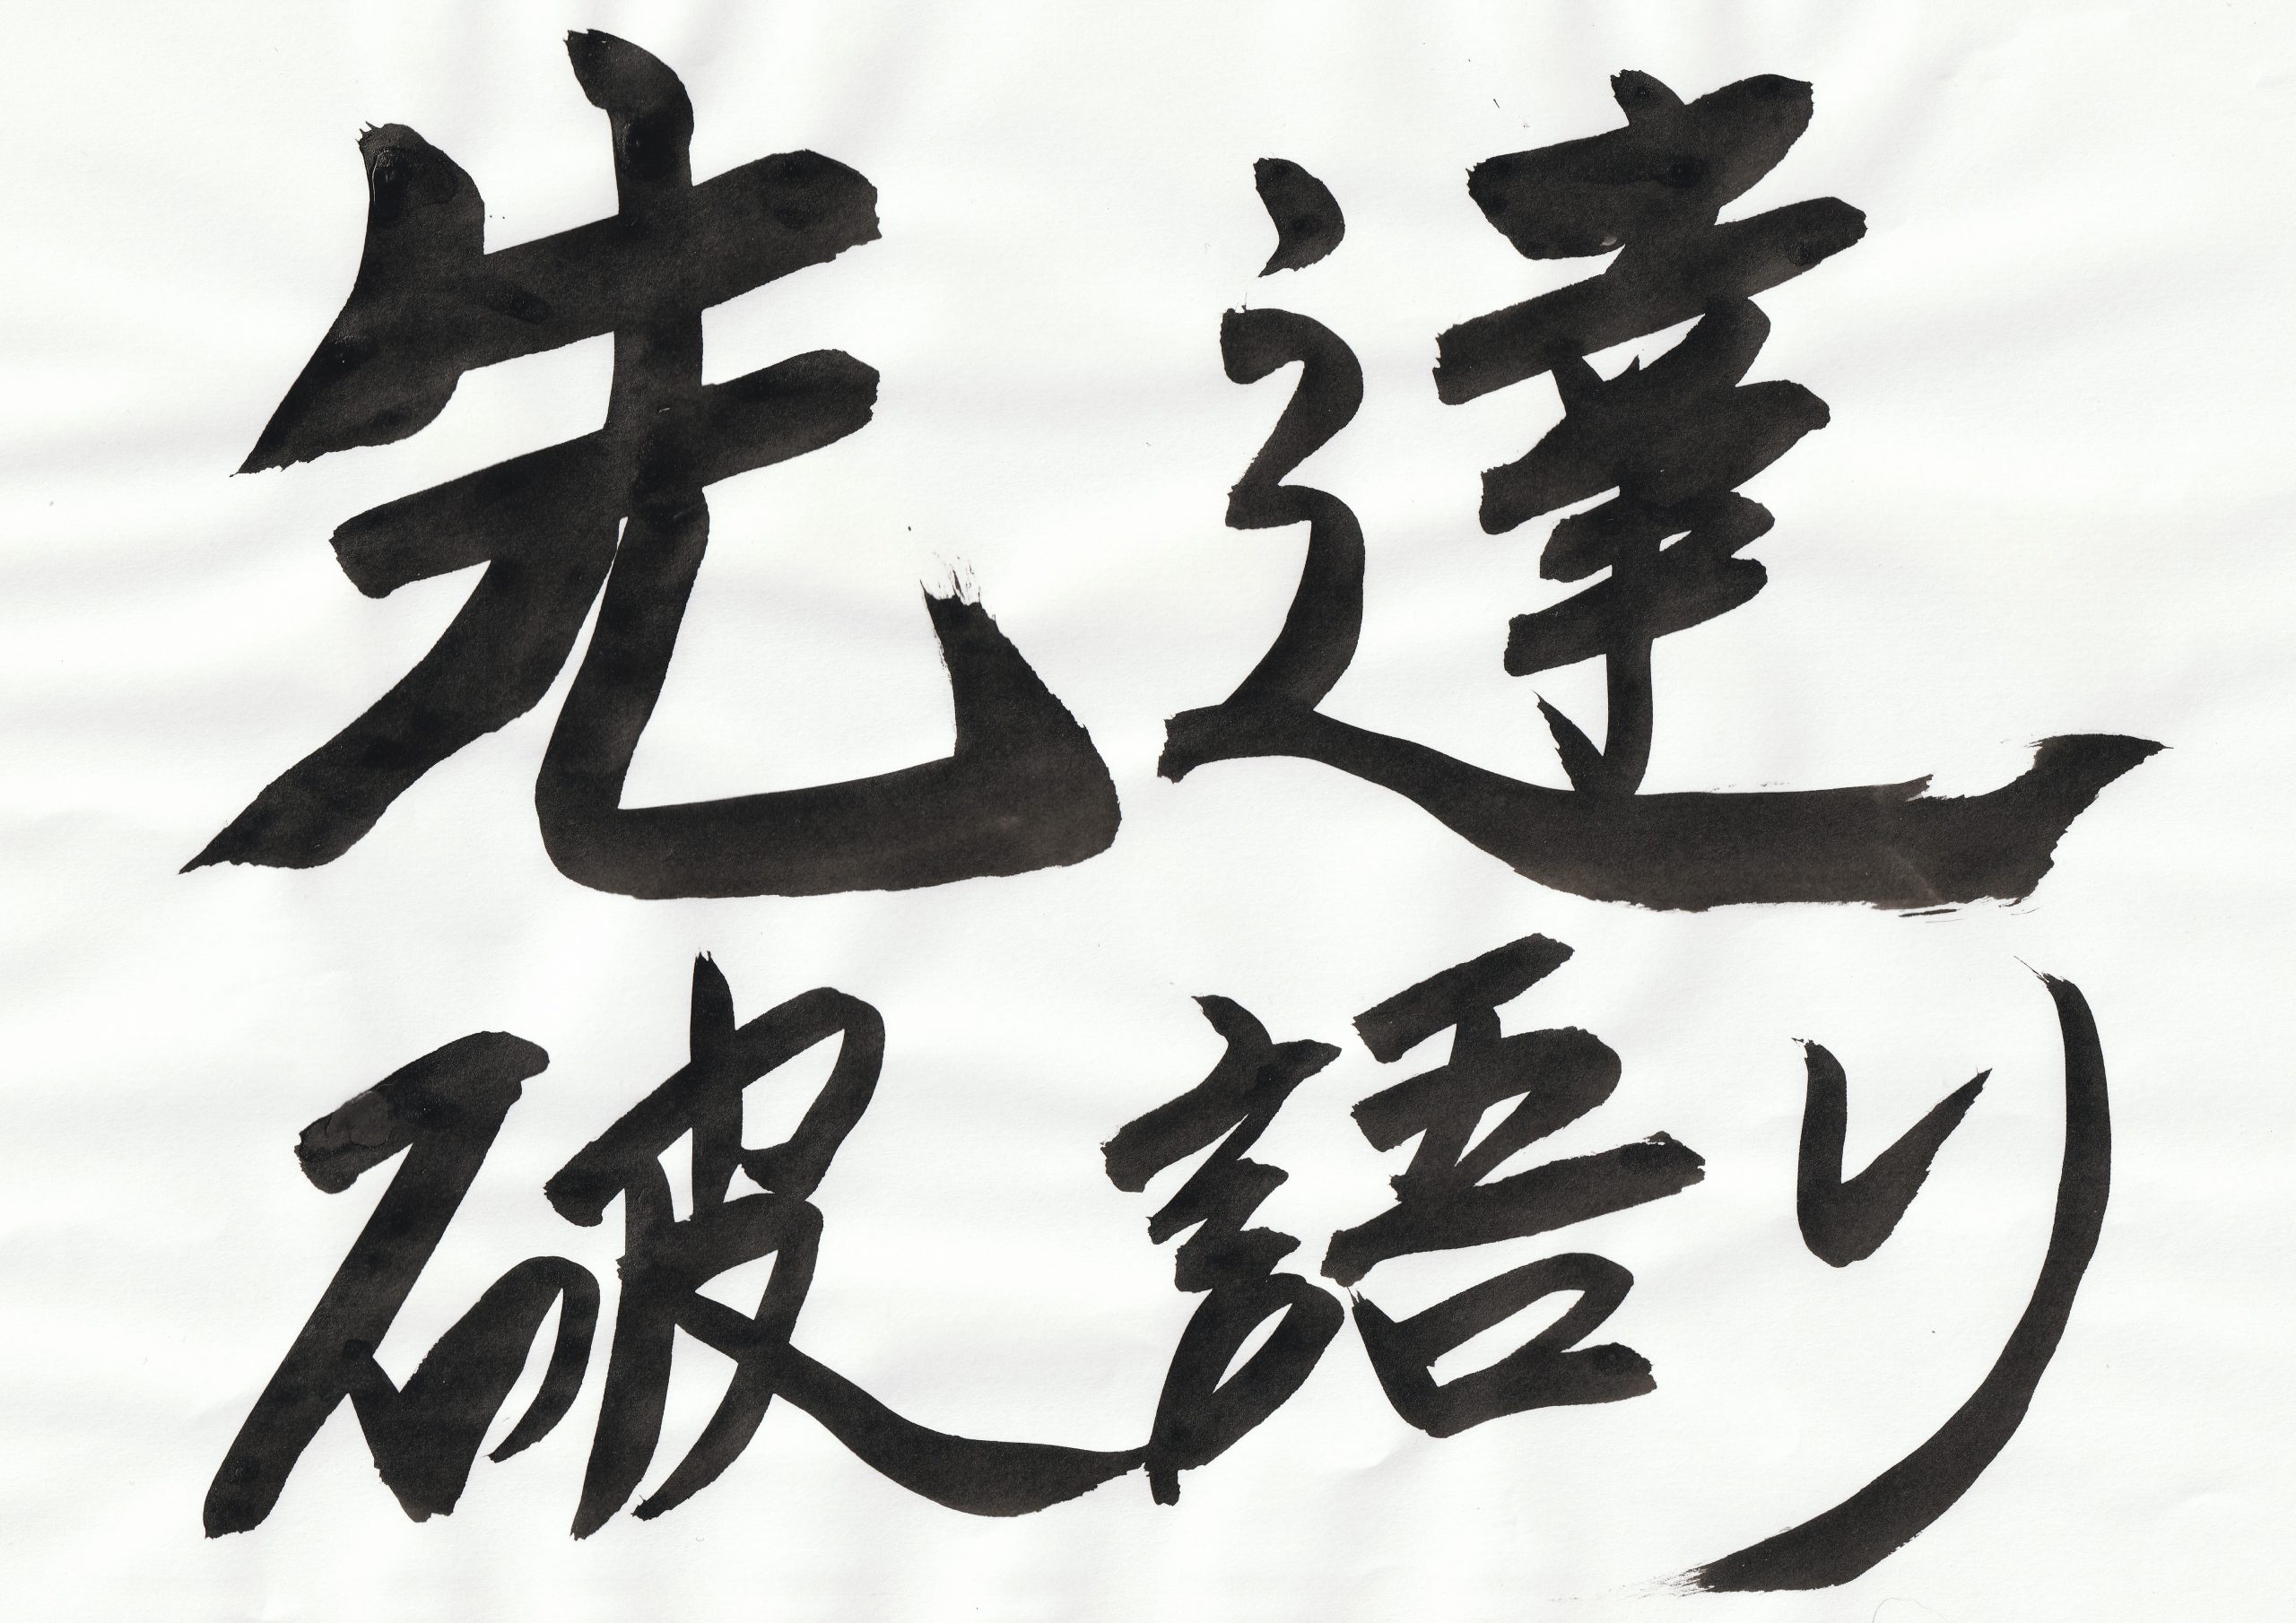 先達
破語り